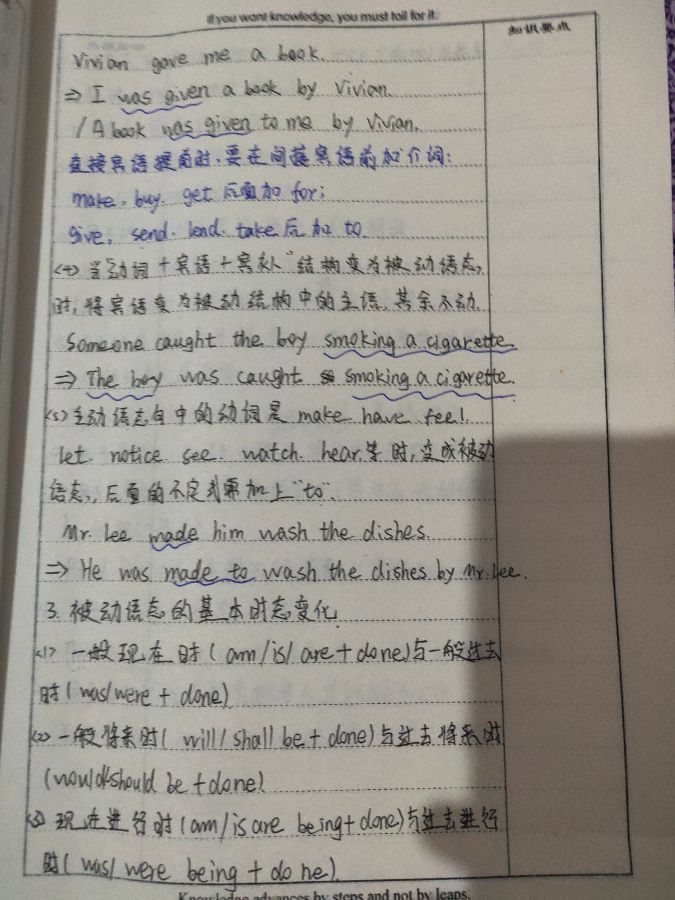 If you want knowledge, you must toil for it.
知识要点
Vivian gave me a book.
⇒ I was given a book by Vivian.
/ A book was given to me by Vivian.
直接宾语提前时,要在间接宾语前加介词:
make. buy. get 后面加 for;
give, send. lend. take 后加 to.
<4> 当"动词+宾语+宾补"结构变为被动语态,
时,将宾语变为被动结构中的主语,其余不动.
Someone caught the boy smoking a cigarette.
⇒ The boy was caught smoking a cigarette.
<5>主动语态句中的动词是 make have feel.
let. notice see. watch. hear.等时,变成被动
语态,后面的不定式需加上"to".
Mr. Lee made him wash the dishes.
⇒ He was made to wash the dishes by Mr. Lee.
3. 被动语态的基本时态变化
<1> 一般现在时(am/is/are+done)与一般过去
时(was/were + done)
<2>一般将来时(will/shall be+done)与过去将来时
(would/should be +done)
<3>现在进行时(am/is are being+done)与过去进行
时(was/were being + done).
Knowledge advances by steps and not by leaps.